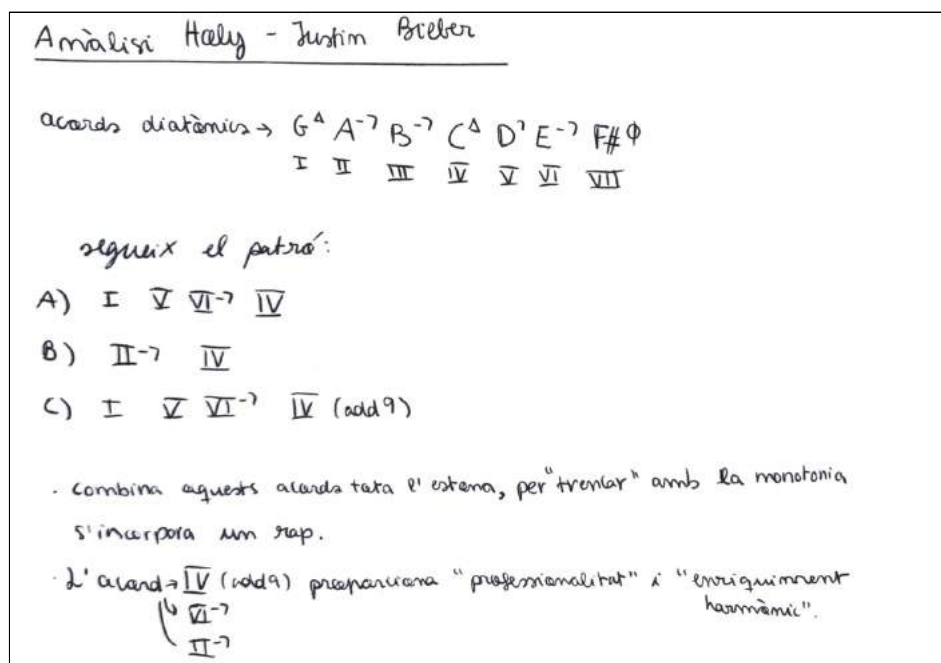 Anàlisi Holy - Justin Bieber
acords diatònics → G△ A-7 B-7 C△ D7 E-7 F#ϕ
I II III IV V VI VII
segueix el patró:
A) I V VI-7 IV
B) II-7 IV
C) I V VI-7 IV (add9)
· Combina aquests acords tota l'estona, per "trencar" amb la monotonia
s'incorpora un rap.
· L'acord → IV (add9) proporciona "professionalitat" i "enriquiment
VI-7 harmònic".
II-7